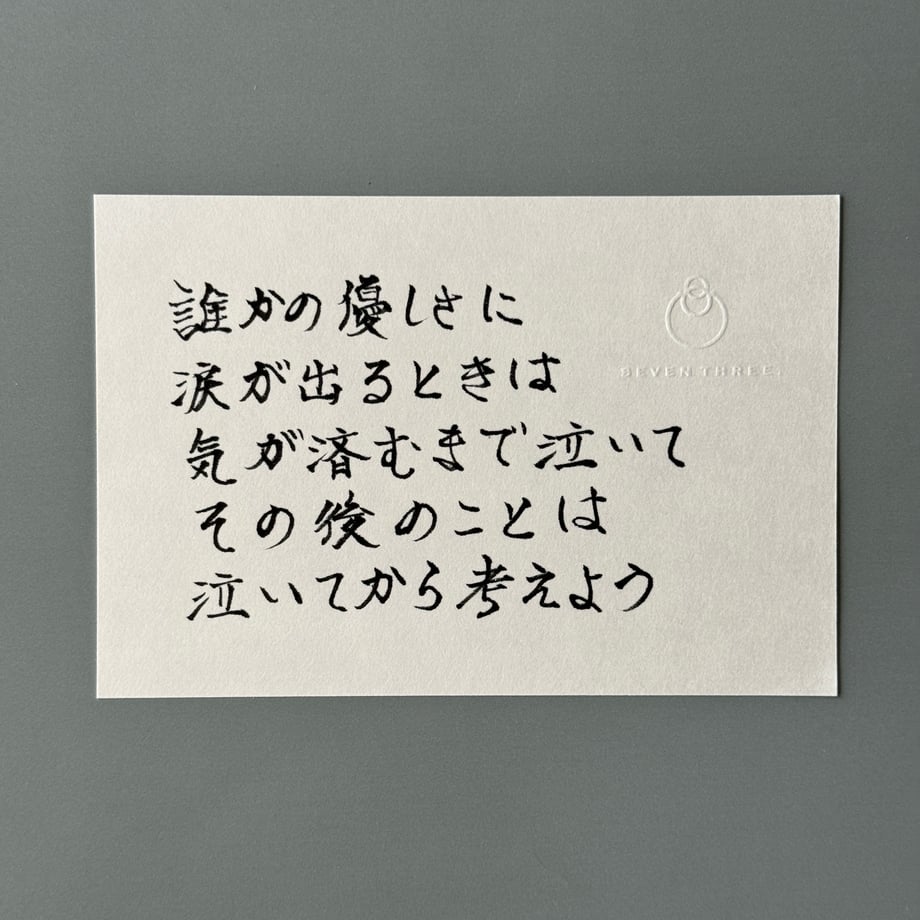 誰かの優しさに
涙が出るときは
気が済むまで泣いて
その後のことは
泣いてから考えよう
SEVEN THREE.